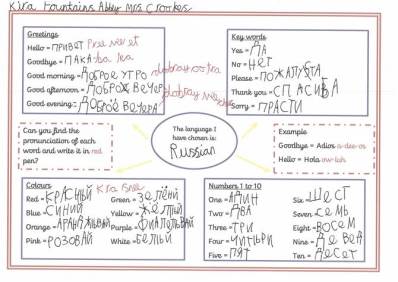 Kira Fountains Abby Mrs Crookes
Greetings
Hello = ПРИВЕТ Pree vet
Goodbye = ПАКА
Good morning = ДОБРОЕ УТРО
Good afternoon = ДОБРОЖ ВЕЧЕР
Good evening = ДОБРОЕ ВЕЧЕРА
Key words
Yes = ДА
No = НЕТ
Please = ПОЖАЛУСТА
Thank you = СПАСИБА
Sorry = ПРАСТИ
Can you find the
pronunciation of each
word and write it in red
pen?
The language I
have chosen is:
Russian
Example
Goodbye = Adios a-dee-os
Hello = Hola ow-lah
Colours
Red = КРАСНЫЙ
Blue = СИНИЙ
Orange =
Pink = РОЗОВАЙ
Green = ЗЕЛЁНИ
Yellow = ЖЕЛТЫЙ
Purple =
White = БЕЛЫЙ
Numbers 1 to 10
One = АДИН
Two = ДВА
Three = ТРИ
Four = ЧИТЫРИ
Five = ПЯТ
Six = ШЕСТ
Seven = СЕМЬ
Eight = ВОСЕМ
Nine = ДЕВЕД
Ten = ДЕСЕТ